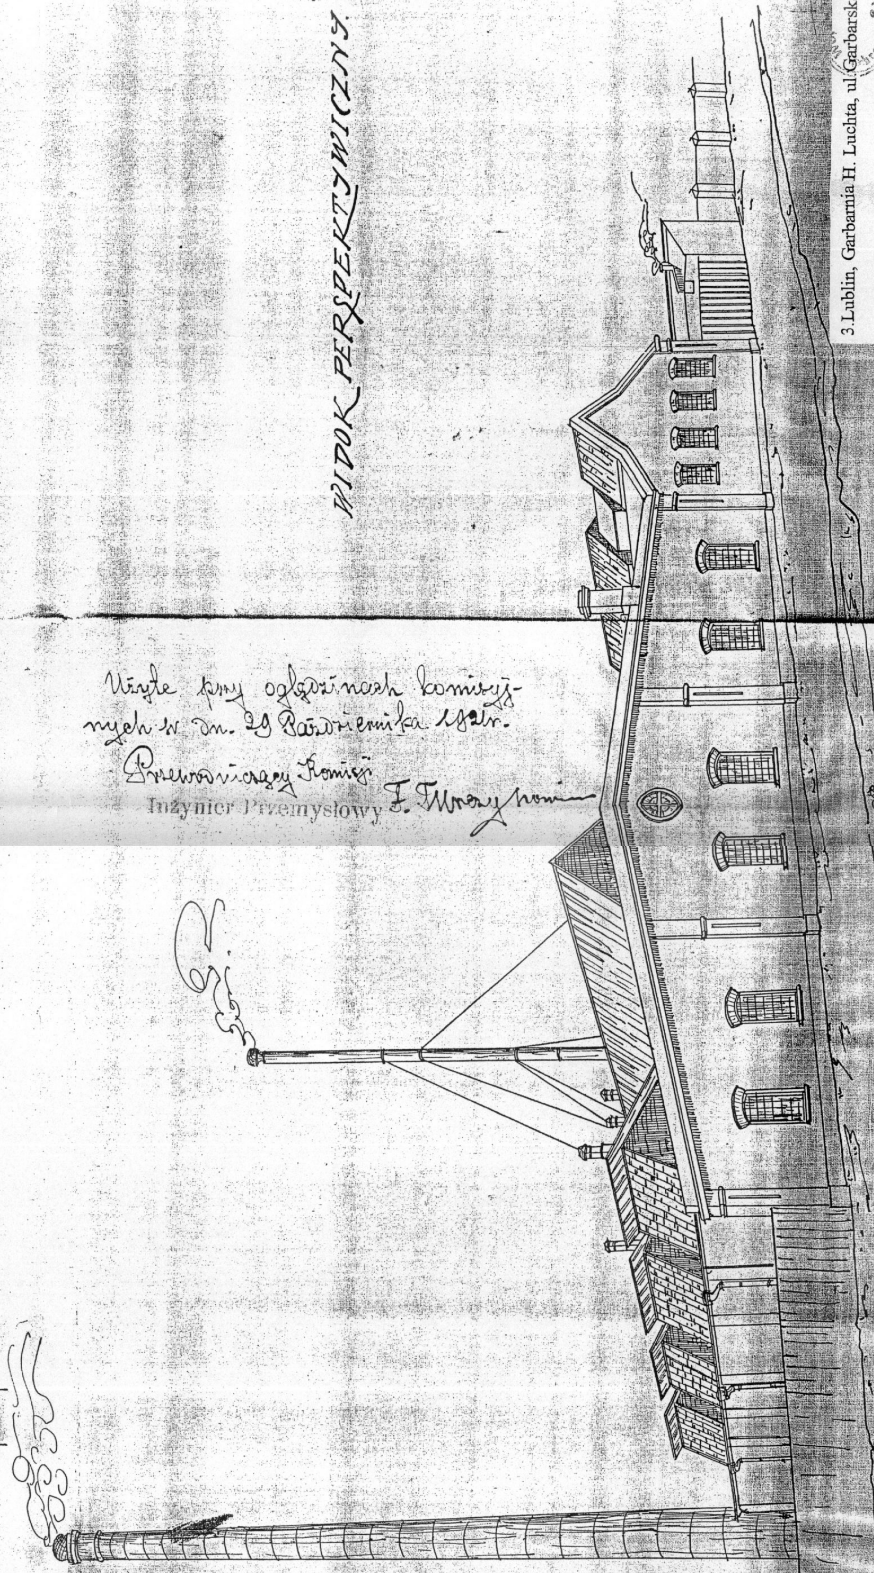 WIDOK PERSPEKTYWICZNY.
Użyte przy oględzinach komisyj-
nych w dn. 29 Października 1921r.
Przewodniczący Komisji
Inżynier Przemysłowy F.
3.Lublin, Garbarnia H. Luchta, ul.Garbarsk